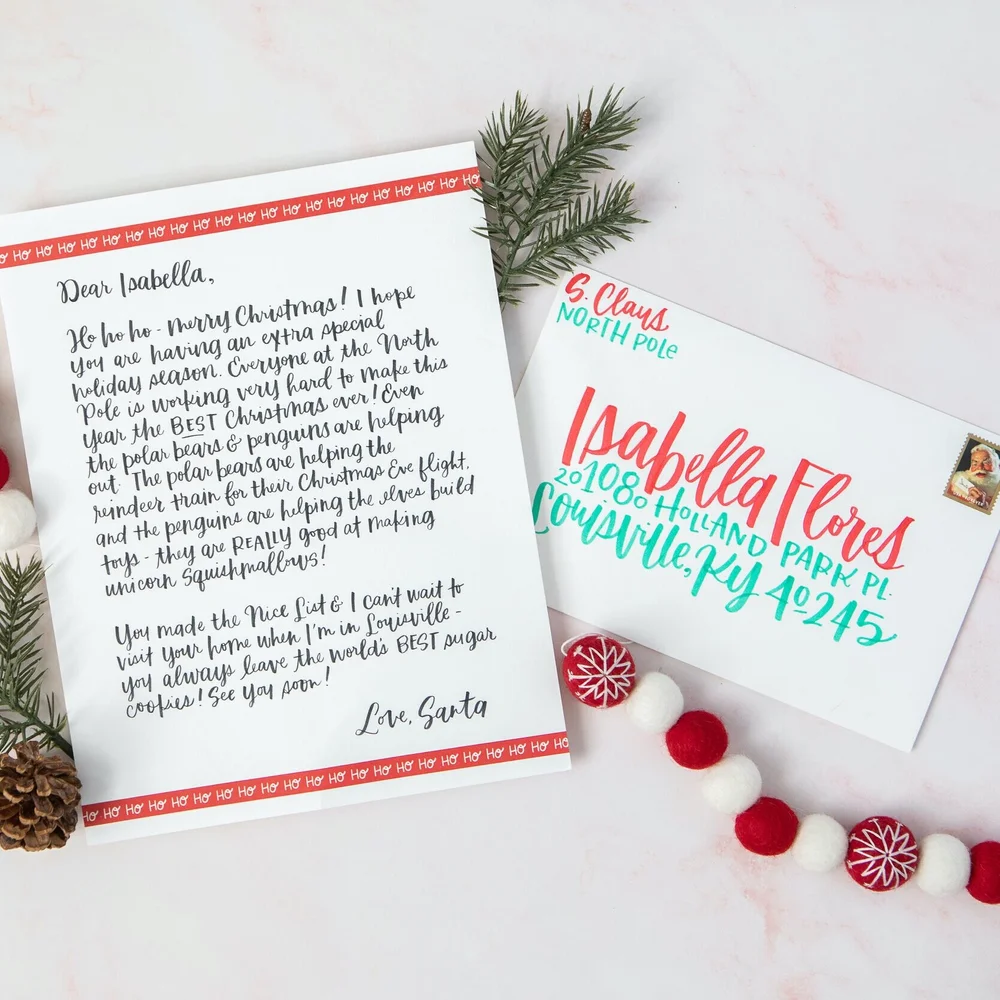 HO HO HO HO HO HO HO HO HO HO HO HO HO HO HO HO HO
Dear Isabella,
Ho ho ho - Merry Christmas! I hope
you are having an extra special
holiday season. Everyone at the North
Pole is working very hard to make this
year the BEST Christmas ever! Even
the polar bears & penguins are helping
out. The polar bears are helping the
reindeer train for their Christmas Eve flight,
and the penguins are helping the elves build
toys - they are REALLY good at making
unicorn Squishmallows!
You made the Nice List & I can't wait to
visit your home when I'm in Louisville -
you always leave the world's BEST sugar
cookies! See you soon!
Love, Santa
HO HO HO HO HO HO HO HO HO HO HO HO HO HO HO HO HO
S. Claus
NORTH POLE
Isabella Flores
201080 HOLLAND PARK PL.
Louisville, KY 40245